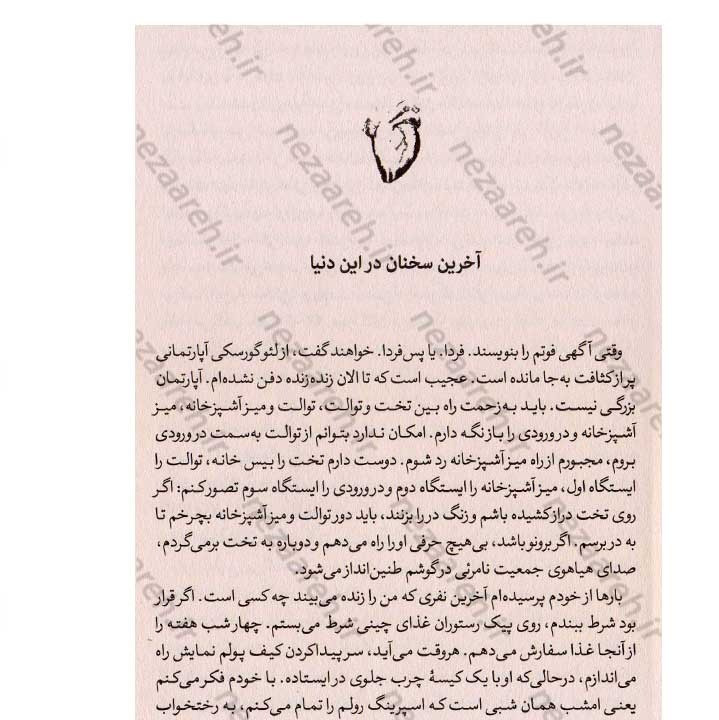 آخرین سخنان در این دنیا
وقتی آگهی فوتم را بنویسند. فردا. یا پس‌فردا. خواهند گفت، از لئو گورسکی آپارتمانی
پر از کثافت به‌جا مانده است. عجیب است که تا الان زنده‌زنده دفن نشده‌ام. آپارتمان
بزرگی نیست. باید به‌زحمت راه بین تخت و توالت، توالت و میز آشپزخانه، میز
آشپزخانه و در ورودی را باز نگه دارم. امکان ندارد بتوانم از توالت به‌سمت در ورودی
بروم، مجبورم از راه میز آشپزخانه رد شوم. دوست دارم تخت را بیس خانه، توالت را
ایستگاه اول، میز آشپزخانه را ایستگاه دوم و در ورودی را ایستگاه سوم تصور کنم: اگر
روی تخت دراز کشیده باشم و زنگ در را بزنند، باید دور توالت و میز آشپزخانه بچرخم تا
به در برسم. اگر برونو باشد، بی‌هیچ حرفی او را راه می‌دهم و دوباره به تخت برمی‌گردم،
صدای هیاهوی جمعیت نامرئی در گوشم طنین‌انداز می‌شود.
بارها از خودم پرسیده‌ام آخرین نفری که من را زنده می‌بیند چه کسی است. اگر قرار
بود شرط ببندم، روی پیک رستوران غذای چینی شرط می‌بستم. چهار شب هفته را
از آنجا غذا سفارش می‌دهم. هروقت می‌آید، سر پیدا کردن کیف پولم نمایش راه
می‌اندازم، درحالی‌که او با یک کیسهٔ چرب جلوی در ایستاده. با خودم فکر می‌کنم
یعنی امشب همان شبی است که اسپرینگ رولم را تمام می‌کنم، به رختخواب
nezaareh.ir